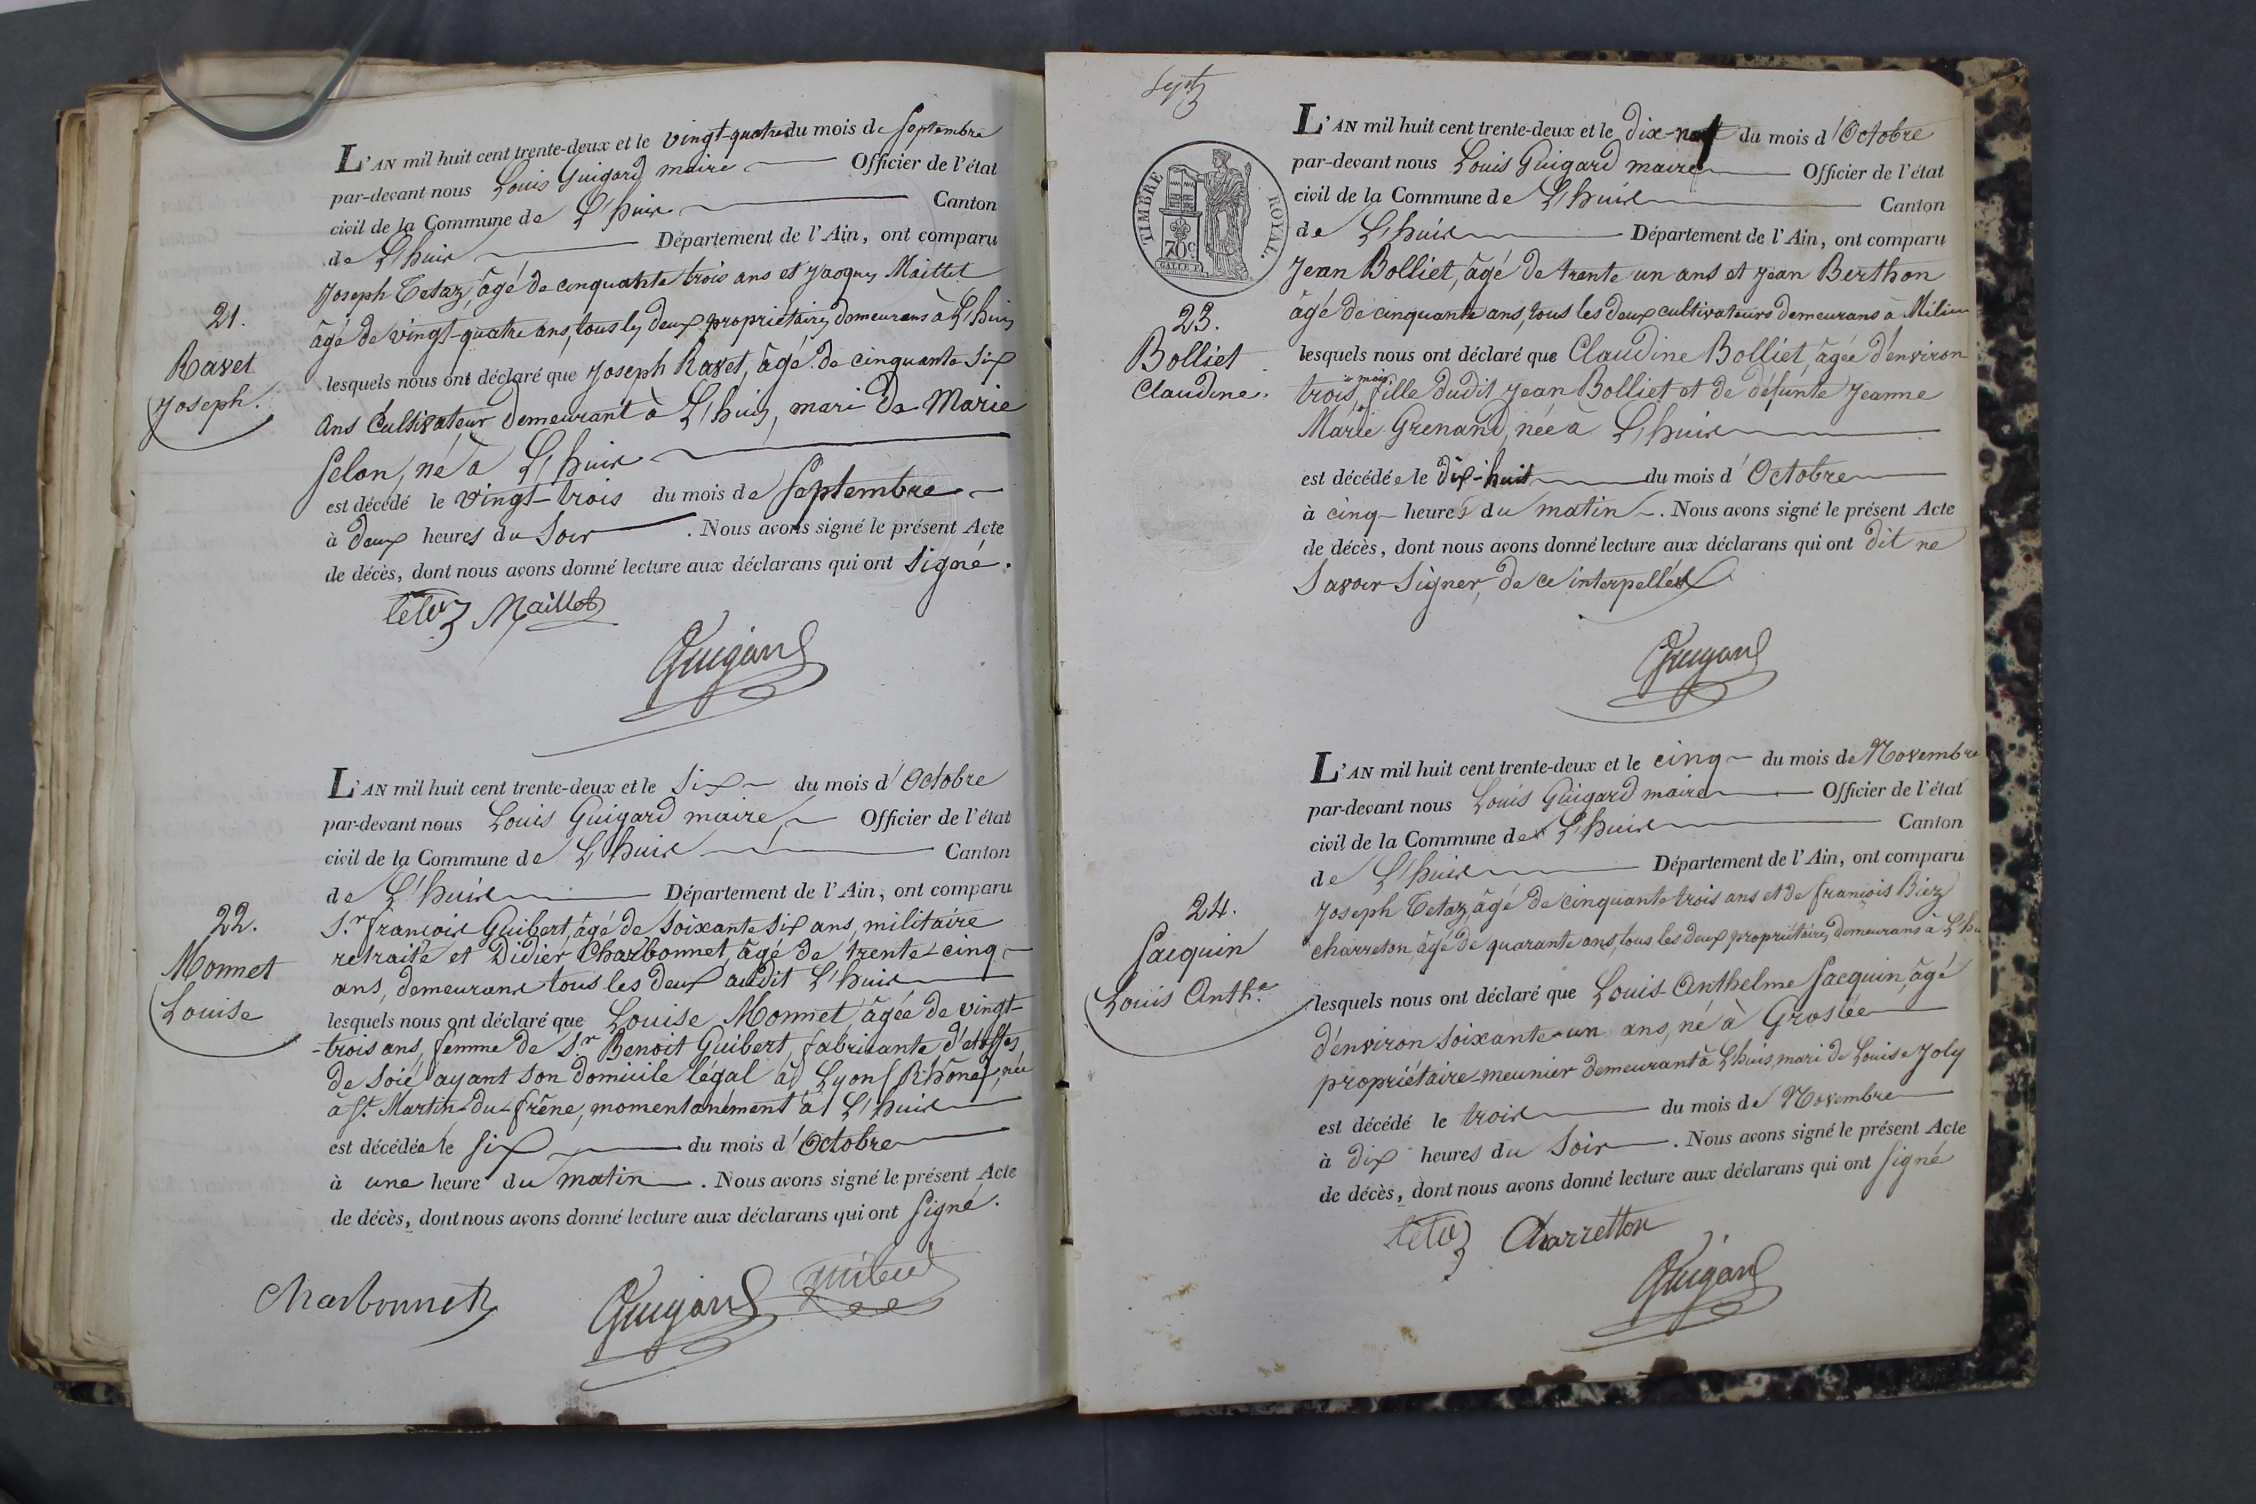 21.
Ravet
Joseph.
L'AN mil huit cent trente-deux et le vingt-quatre du mois de Septembre
par-devant nous Louis Guigard maire Officier de l'état
civil de la Commune de L'huis Canton
de L'huis Département de l'Ain, ont comparu
Joseph Tetaz, âgé de cinquante trois ans et Jacques Maillet
âgé de vingt-quatre ans, tous les deux propriétaires demeurans à L'huis
lesquels nous ont déclaré que Joseph Ravet, âgé de cinquante six
ans Cultivateur demeurant à L'huis, mari de Marie
Selon, né à L'huis
est décédé le vingt-trois du mois de Septembre
à deux heures du Soir . Nous avons signé le présent Acte
de décès, dont nous avons donné lecture aux déclarans qui ont signé.
tetaz Maillet
Guigard
22.
Monnet
Louise
L'AN mil huit cent trente-deux et le Six du mois d'Octobre
par-devant nous Louis Guigard maire Officier de l'état
civil de la Commune de L'huis Canton
de L'huis Département de l'Ain, ont comparu
S.r François Guibert, âgé de soixante six ans, militaire
retraité et Didier Charbonnet, âgé de trente-cinq
ans, demeurans tous les deux audit L'huis
lesquels nous ont déclaré que Louise Monnet âgée de vingt-
-trois ans, femme de S.r Benoit Guibert, fabricante d'étoffes
de soie ayant son domicile légal à Lyon (Rhône), née
à St. Martin-du-frêne, momentanément à L'huis
est décédée le six du mois d'Octobre
à une heure du matin . Nous avons signé le présent Acte
de décès, dont nous avons donné lecture aux déclarans qui ont Signé.
Charbonnet
Guigard
Guibert
TIMBRE ROYAL.
70c.
23.
Bolliet
Claudine.
L'AN mil huit cent trente-deux et le dix-neuf du mois d'Octobre
par-devant nous Louis Guigard maire Officier de l'état
civil de la Commune de L'huis Canton
de L'huis Département de l'Ain, ont comparu
Jean Bolliet, âgé de trente un ans et Jean Berthon
âgé de cinquante ans, tous les deux cultivateurs demeurans à Milieu
lesquels nous ont déclaré que Claudine Bolliet, âgée d'environ
trois mois, fille dudit Jean Bolliet et de défunte Jeanne
Marie Grenand, née à L'huis
est décédée le dix-huit du mois d'Octobre
à cinq heures du matin . Nous avons signé le présent Acte
de décès, dont nous avons donné lecture aux déclarans qui ont dit ne
Savoir Signer, de ce interpellés
Guigard
24.
Jacquin
Louis Anth.e
L'AN mil huit cent trente-deux et le cinq du mois de Novembre
par-devant nous Louis Guigard maire Officier de l'état
civil de la Commune de L'huis Canton
de L'huis Département de l'Ain, ont comparu
Joseph Tetaz, âgé de cinquante trois ans et de François Biez
charreton, âgé de quarante ans, tous les deux propriétaires, demeurans à L'hu
lesquels nous ont déclaré que Louis-Anthelme Jacquin, âgé
d'environ soixante-un ans, né à Groslée
propriétaire-meunier demeurant à L'huis, mari de Louise Joly
est décédé le trois du mois de Novembre
à dix heures du Soir . Nous avons signé le présent Acte
de décès, dont nous avons donné lecture aux déclarans qui ont signé
tetaz Charretton
Guigard